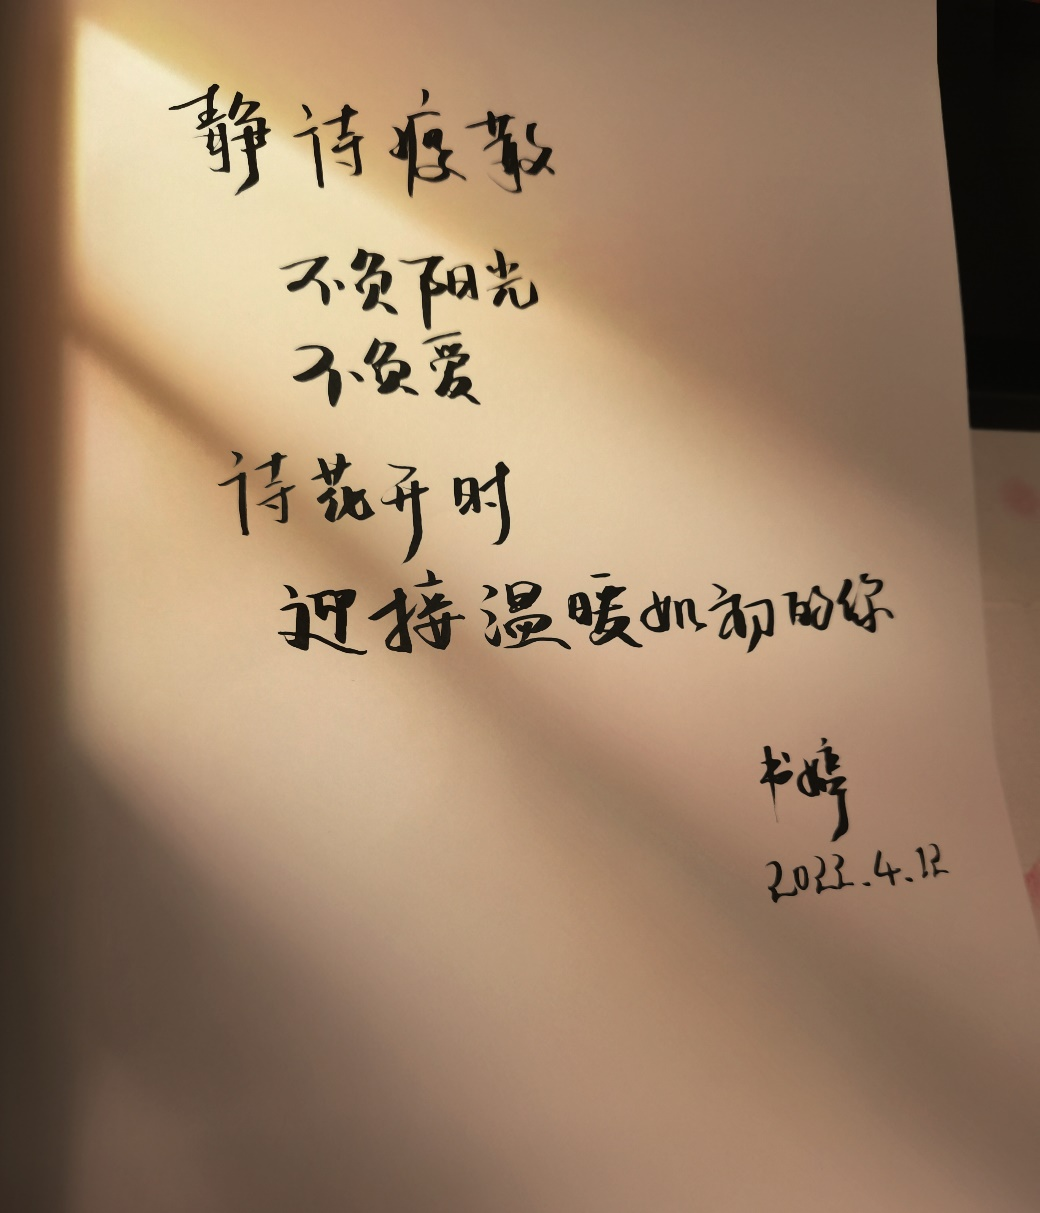 静待疫散
不负阳光
不负爱
待花开时
迎接温暖如初的你
书婷
2022.4.12